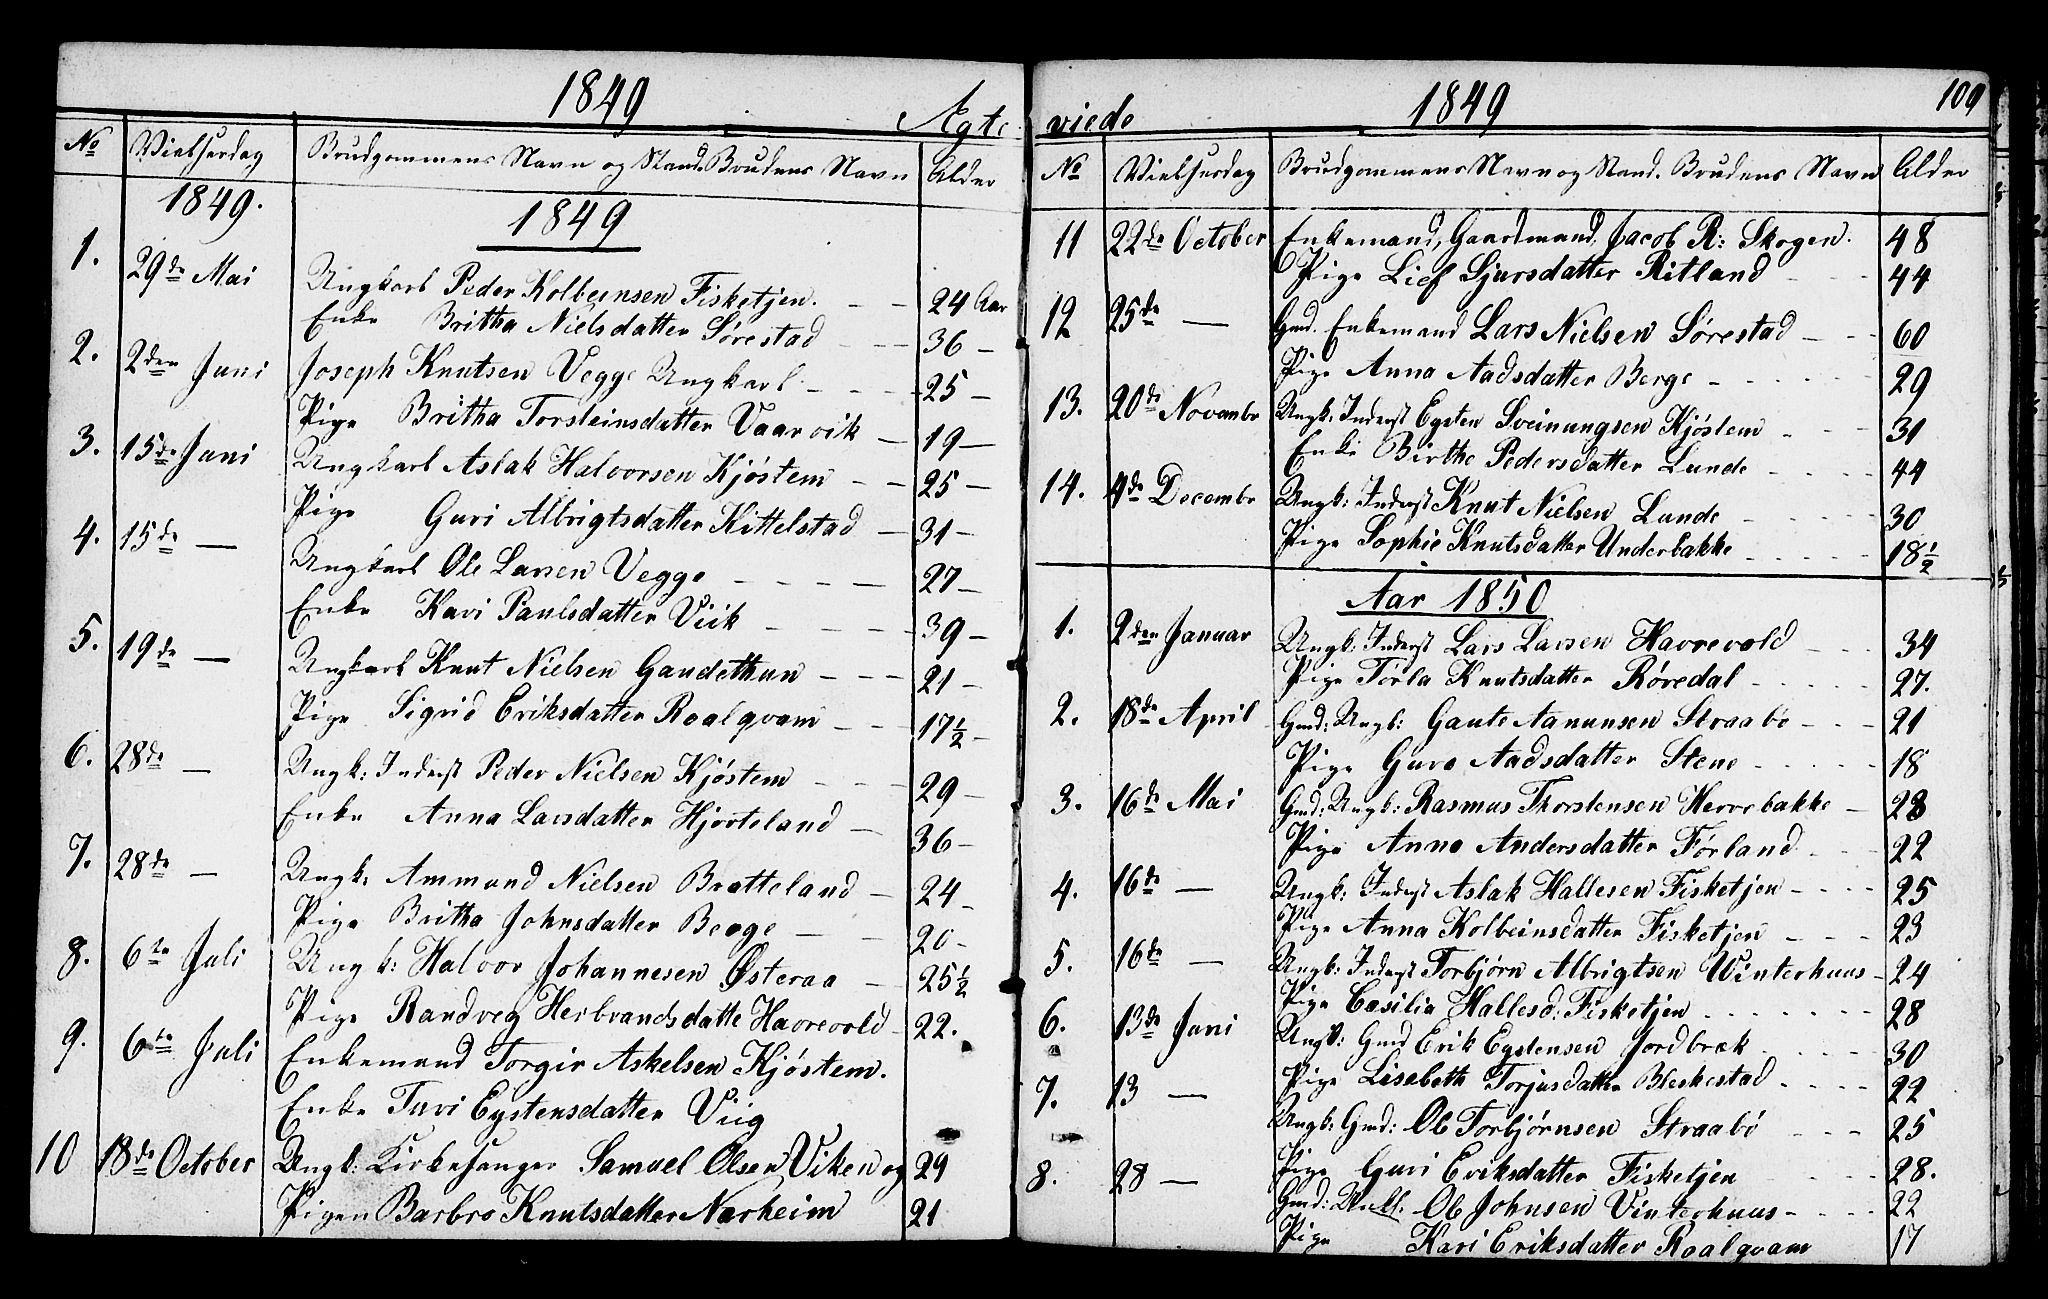 1849
Ægte
No Vielsesdag Brudgommens Navn og Stand. Brudens Navn Alder
1849. 1849
1. 29de Mai Ungkarl Peder Kolbeinsen Fisketjen. 24 Aar
Enke Britha Nielsdatter Sørestad 36
2. 2den Juni Joseph Knutsen Vegge Ungkarl 25
Pige Britha Torsteinsdatter Vaarvik 19
3. 15de Juni Ungkarl Aslak Halvorsen Kjøstem 25
Pige Guri Albrigtsdatter Kittelstad 31
4. 15de — Ungkarl Ole Larsen Vegge 27
Enke Kari Paulsdatter Viik 39
5. 19de — Ungkarl Knut Nielsen Gaudethun 21
Pige Sigrid Eriksdatter Roalqvam 17 1/2
6. 28de — Ungk: Inderst Peder Nielsen Kjøstem 29
Enke Anna Larsdatter Hjorteland 36
7. 28de — Ungk: Ammund Nielsen Bratteland 24
Pige Britha Johnsdatter Berge 20
8. 6te Juli Ungk: Halvor Johannesen Østeraa 25 1/2
Pige Randveg Herbrandsdatte Havrevold 22.
9. 6te Juli Enkemand Torgir Askelsen Kjøstem.
Enke Turi Eystensdatter Viig
10 18de October Ungk: Kirkesanger Samuel Olsen Viken og 29
Pigen Barbro Knutsdatter Narheim 21
1849 109
viede
No Vielsesdag Brudgommens Navn og Stand. Brudens Navn Alder
11 22de October Enkemand, Gaardmand, Jacob R: Skogen. 48
Pige Lief Sjursdatter Ritland 44
12 25de — Gmd. Enkemand Lars Nielsen Sørestad 60
Pige Anna Aadsdatter Berge 29
13. 20de Novembr Ungk: Inderst Eysten Sveinungsen Kjøstem 31
Enke Birthe Pedersdatter Lunde 44
14. 4de Decembr Ungk: Inderst Knut Nielsen Lunde 30
Pige Sophie Knutsdatter Underbakke 18 1/2
Aar 1850
1. 2den Januar Ungk: Inderst Lars Larsen Havrevold 34
Pige Torla Knutsdatter Røredal 27.
2. 18de April Gmd: Ungk: Gaute Aanunsen Straabø 21
Pige Guro Aadsdatter Stene 18
3. 16de Mai Gmd: Ungk: Rasmus Thorstensen Herrebakke 28
Pige Anna Andersdatter Førland 22
4. 16de — Ungk: Inderst Aslak Hallesen Fisketjen 25
Pige Anna Kolbeinsdatter Fisketjen 23
5. 16de — Ungk: Inderst Torbjørn Albrigtsen Winterhuus 24
Pige Cæsilia Hallesd: Fisketjen 28
6. 13de Juni Ungk: Gmd Erik Eystensen Jordbrek 30
Pige Lisabeth Torjusdatter Bleskestad 22
7. 13 — Ungk: Gmd: Ole Torbjørnsen Straabø 25
Pige Guri Eriksdatter Fisketjen 28.
8. 28 — Gmd: Ungk. Ole Johnsen Vinterhuus 22
Pige Kari Eriksdatter Roalqvam 17